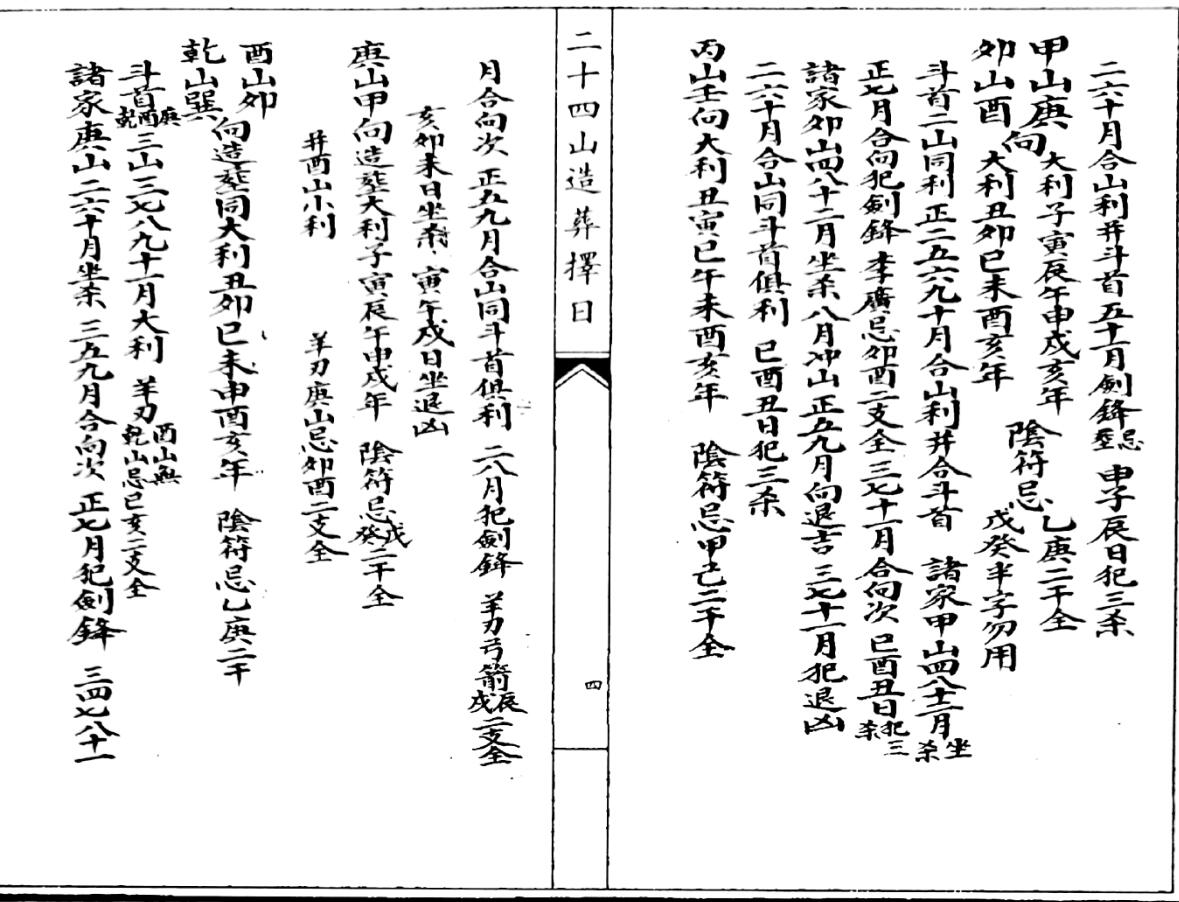 二六十月合山利并斗首五十一月劍鋒忌塟 申子辰日犯三杀
甲山庚向 大利子寅辰午申戌亥年 陰符忌 乙庚二干全
卯山酉向 大利丑卯巳未酉亥年 戊癸半字勿用
斗首二山同利正二五六九十月合山利并合斗首 諸家甲山四八十二月坐杀
正七月合向犯劍鋒李廣忌卯酉二支全三七十一月合向次 巳酉丑日犯三杀
諸家卯山四八十二月坐杀八月冲山正五九月向退吉 三七十一月犯退凶
二六十月合山同斗首俱利 巳酉丑日犯三杀
丙山壬向大利丑寅巳午未酉亥年 陰符忌甲己二干全
二十四山造葬擇日
四
月合向次 正五九月合山同斗首俱利 二八月犯劍鋒 羊刃弓箭辰戌二支全
亥卯未日坐煞 寅午戌日坐退凶
庚山甲向造塟大利子寅辰午申戌年 陰符忌戊癸二干全
并酉山小利 羊刃庚山忌卯酉二支全
酉山卯
乾山巽向造塟同大利丑卯巳未申酉亥年 陰符忌乙庚二干
斗首庚酉乾三山三七八九十一月大利 羊刃酉山無乾山忌巳亥二支全
諸家庚山二六十月坐杀 三五九月合向次 正七月犯劍鋒 三四七八十一